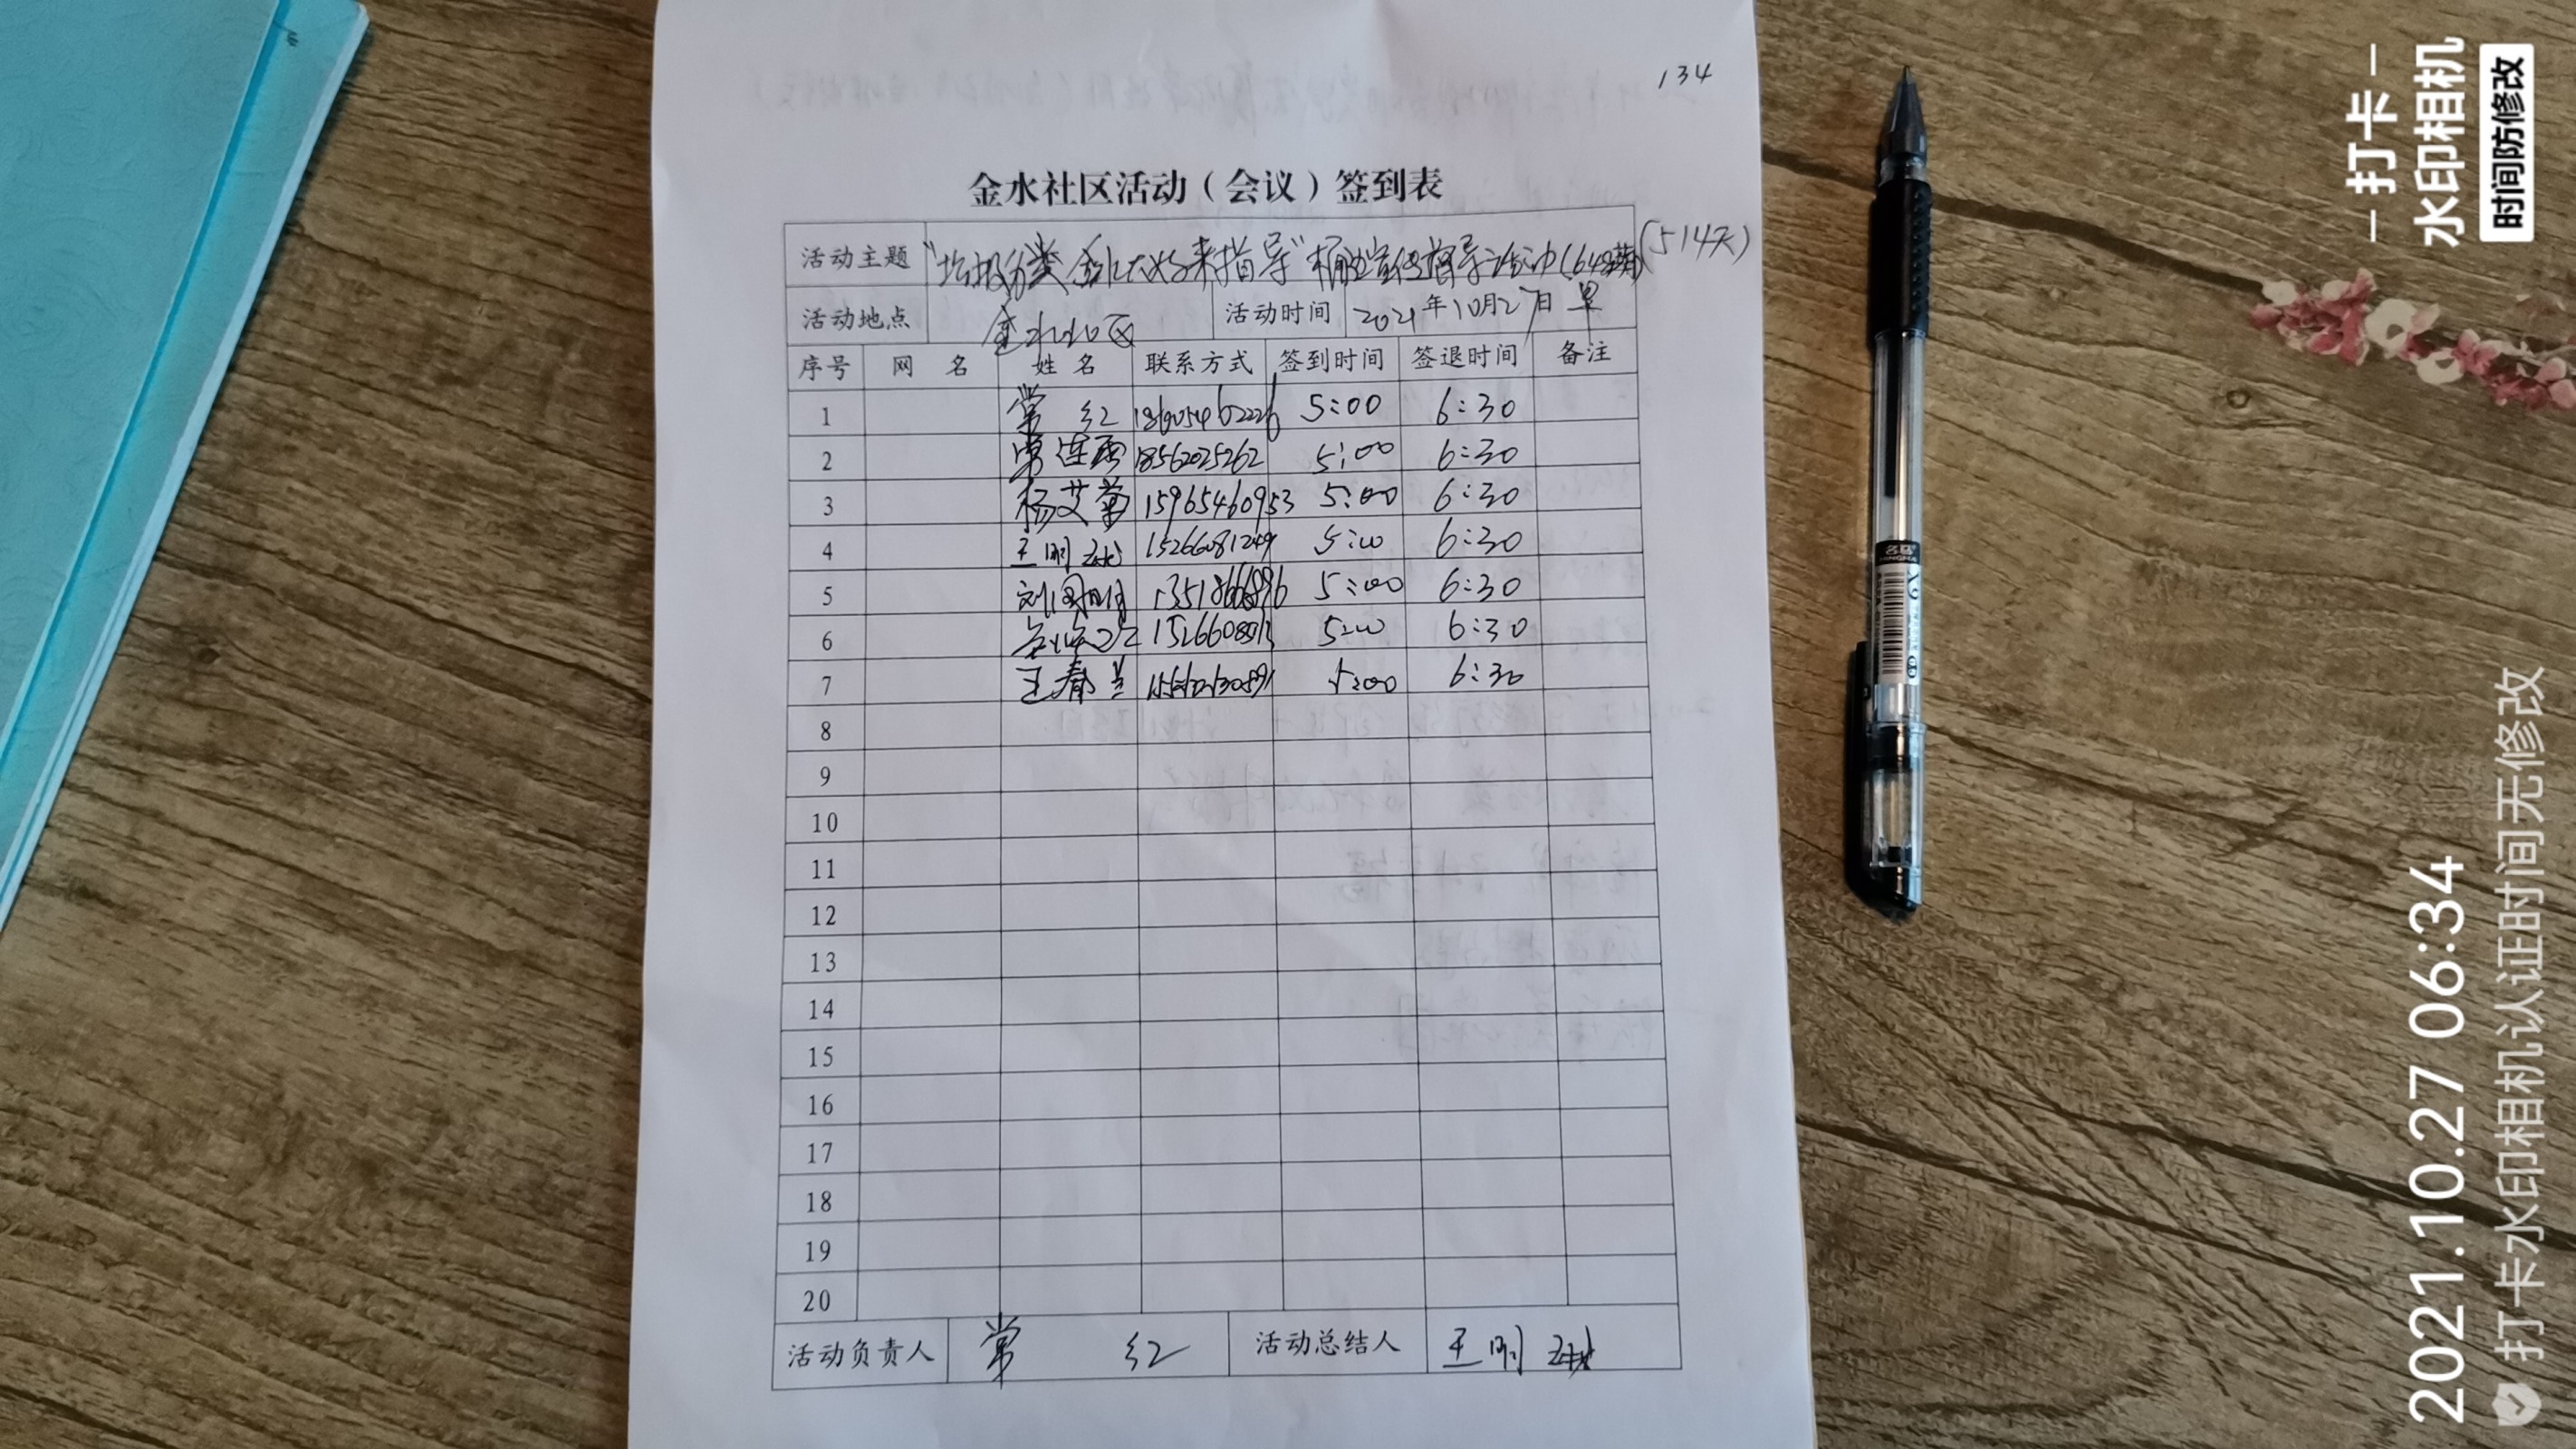 134
金水社区活动（会议）签到表
活动主题 "垃圾分类 金水大妈来指导"桶边宣传督导活动 (514天)
活动地点 金水社区 活动时间 2021年10月27日 早
序号 网 名 姓 名 联系方式 签到时间 签退时间 备注
1 常 红 5:00 6:30
2 常连 18562025262 5:00 6:30
3 杨艾菊 15965460953 5:00 6:30
4 王明 15266081249 5:00 6:30
5 刘 5:00 6:30
6 5:00 6:30
7 王春兰 5:00 6:30
8
9
10
11
12
13
14
15
16
17
18
19
20
活动负责人 常 红 活动总结人 王明
打卡
水印相机
时间防修改
2021.10.27 06:34
打卡水印相机认证时间无修改